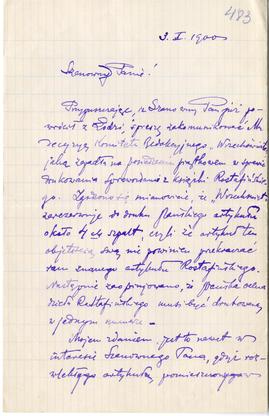 483
3. X. 1900
Szanowny Panie!
Przypuszczając, że Szanowny Pan już po-
wrócił z Łodzi, śpieszę zakomunikować Mu
decyzyę Komitetu Redakcyjnego „Wszechświata”,
jaka zapadła na posiedzeniu piątkowem w sprawie
drukowania sprawozdania z książki Rostafińskie-
go. Zgodzono się mianowicie, że „Wszechświat”
zarezerwuje do druku Pańskiego artykułu
około 4 szpalt, czyli że artykuł ten
objętością swą nie powinien przekraczać
ram znanego artykułu Rostafińskiego.
Następnie zaopiniowano, że Pańska ocena
dzieła Rostafińskiego musi być drukowana
w jednym numerze. —
Mojem zdaniem, jest to nawet w
interesie Szanownego Pana, gdyż roz-
wlekłego artykułu, pomieszczonego w